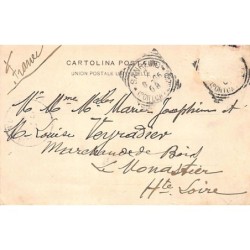 France
CARTOLINA POSTALE
UNION POSTALE UNIVERSELLE
Mr. Mme Melles Marie Josephine et
Mr Louise Veyradier
Marchands de Bois
Le Monastier
Hte Loire